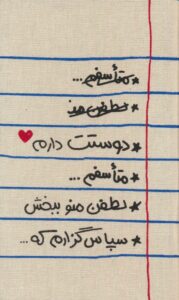 ★ متأسفم...
★ لطفن منو
★ دوستت دارم
★ متأسفم...
★ لطفن منو ببخش
★ سپاس‌گزارم که...